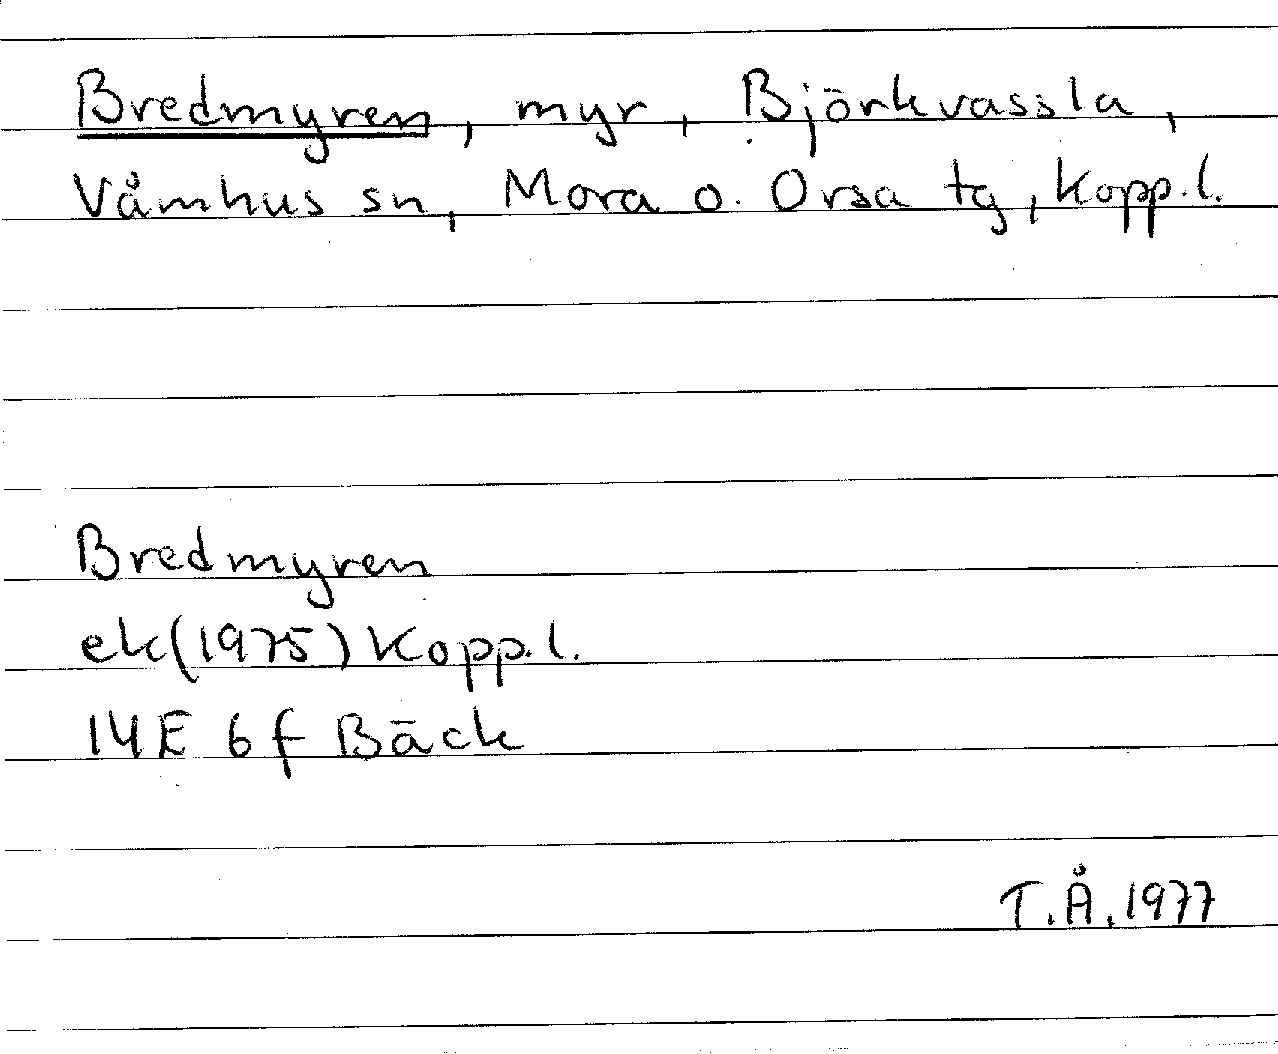 Bredmyren, myr, Björkvassla,
Våmhus sn, Mora o. Orsa tg, Kopp.l.
Bredmyren
ek(1975) Kopp.l.
14E 6f Bäck
T.Å.1977